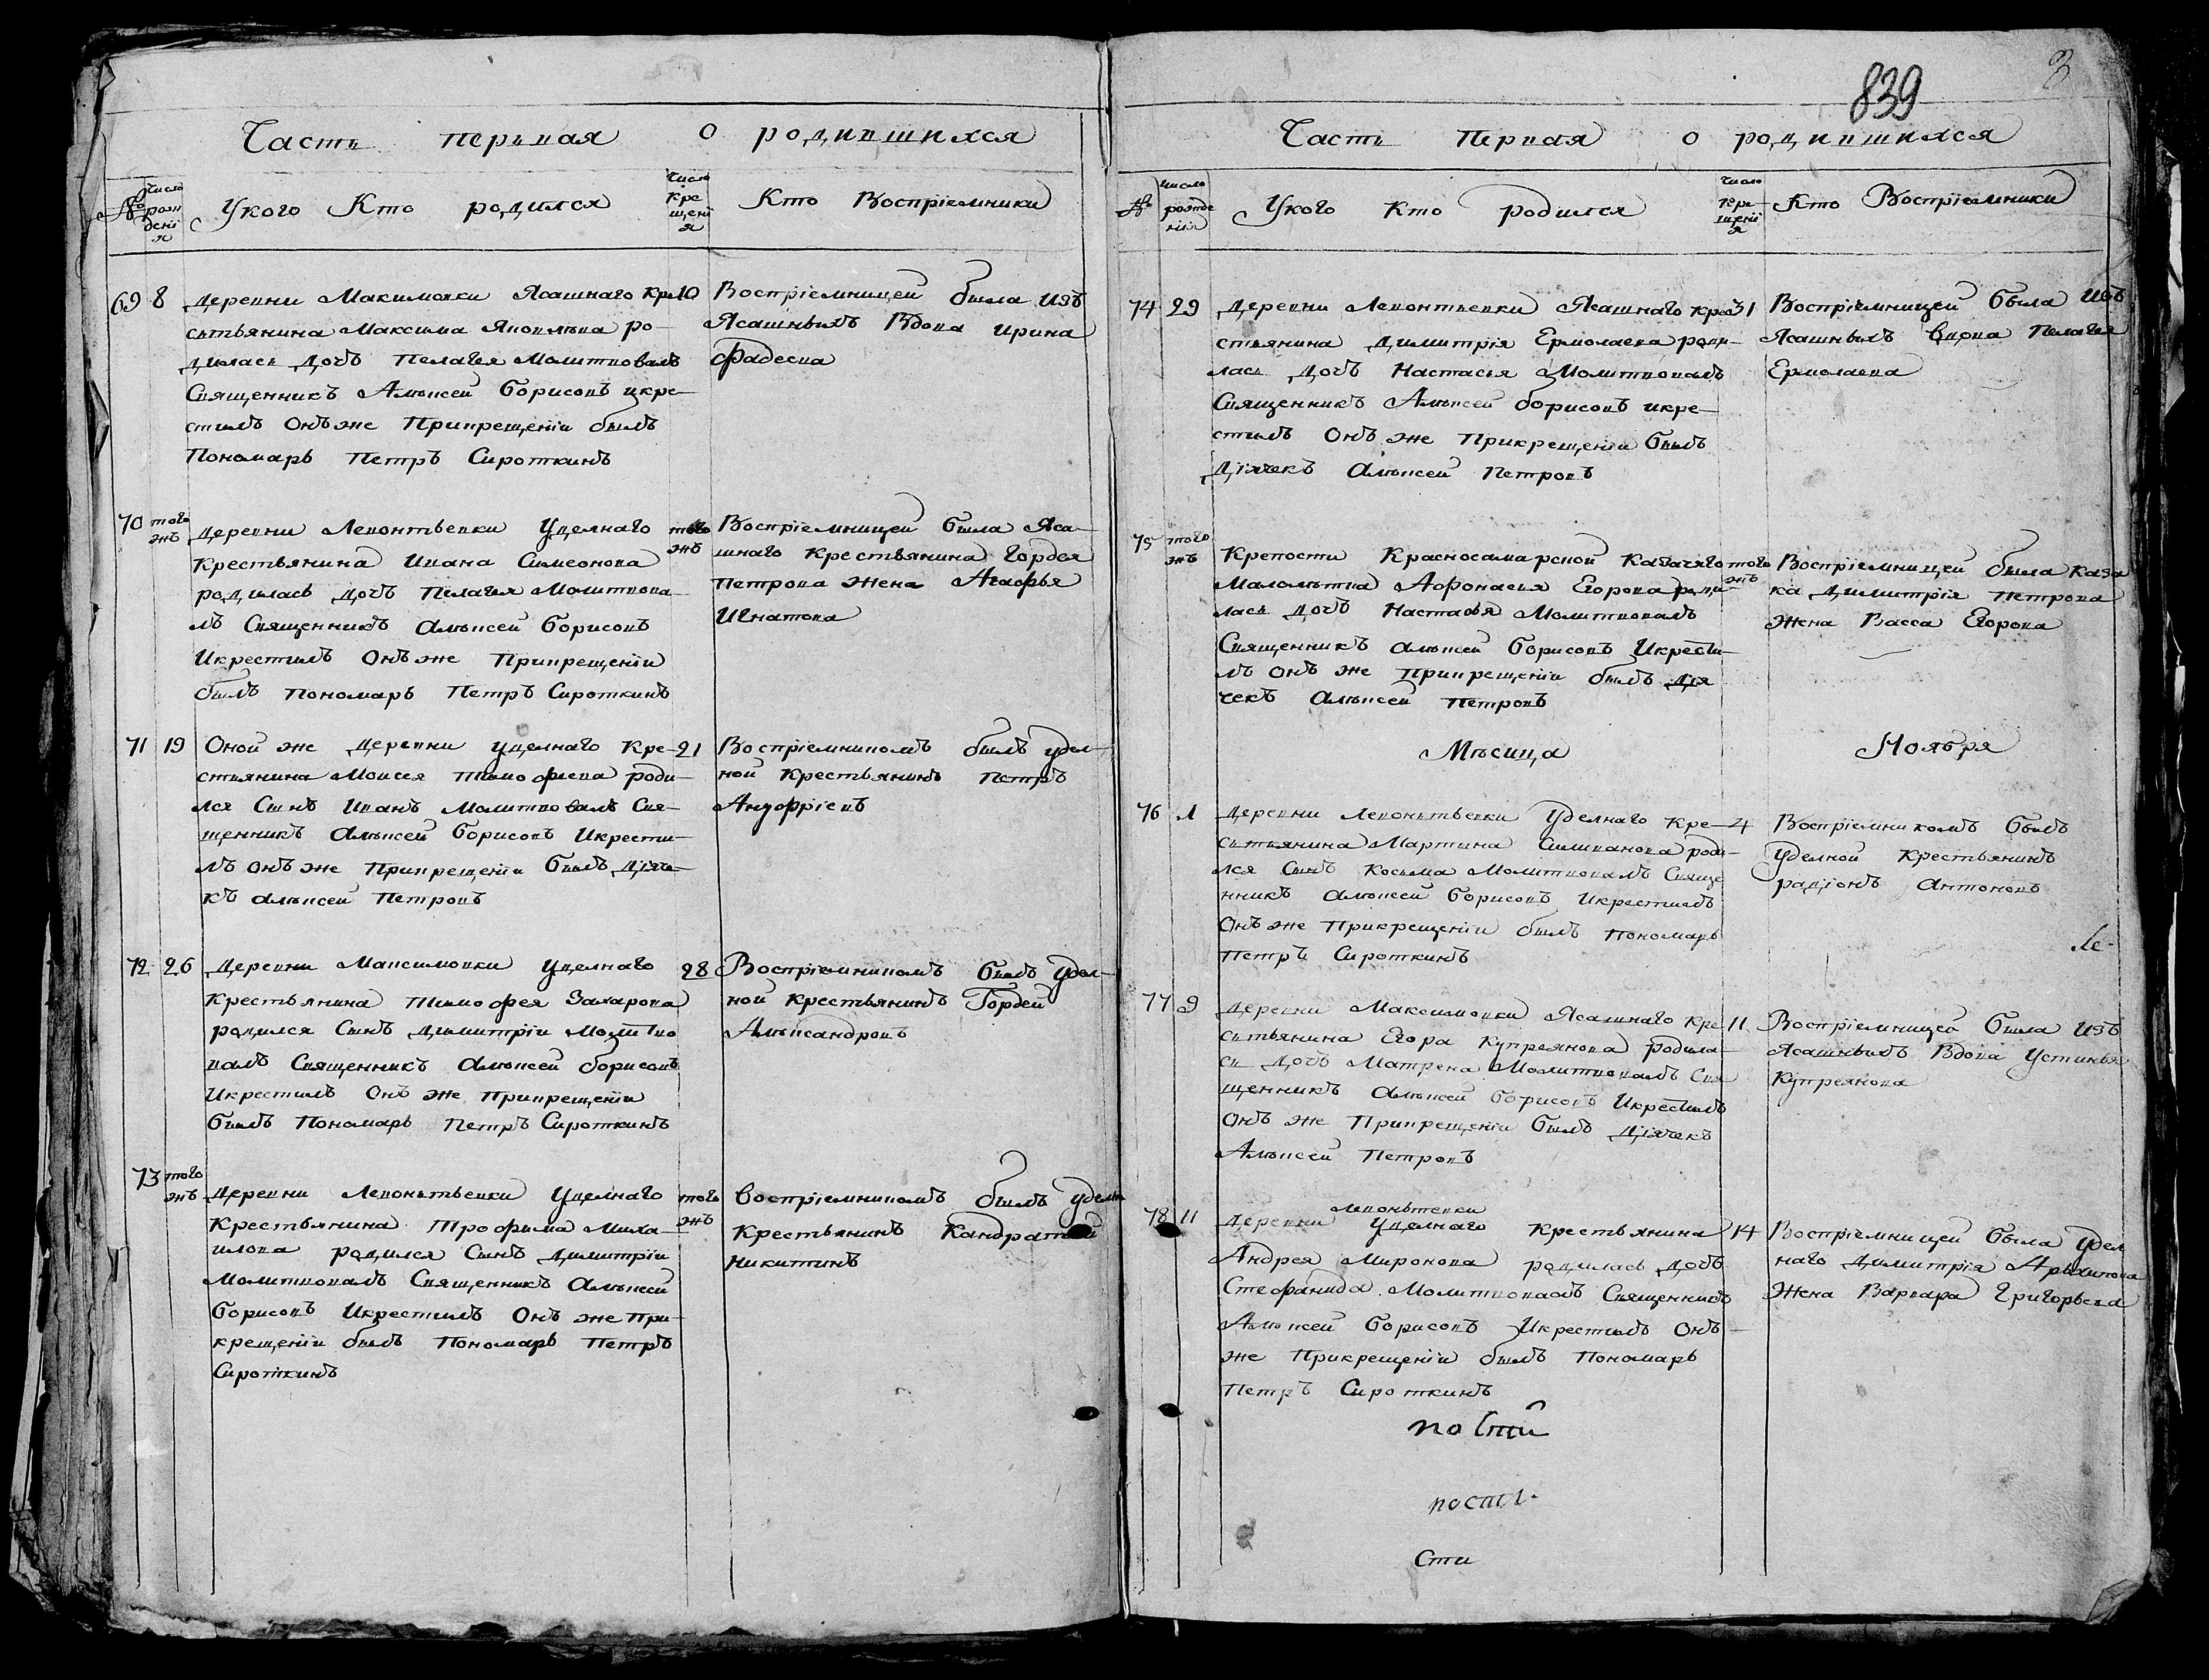 839
3
Часть первая о родившихся
№
число рождения
У кого Кто родился
число крещения
Кто Воспріемники
69 8 Деревни Максимовки Ясашнаго Кре- 10
сьтьянина Максима Яковлѣва ро-
дилась дочь Пелагея Молитвовалъ
Священникъ Алѣксей Борисовъ икре-
стилъ Онъ же Прикрещеніи былъ
Пономарь Петръ Сироткинъ
Воспріемницей была изъ
Ясашныхъ Вдова Ирина
Фадеева
70 того жъ Деревни Левонтьевки Уделнаго того жъ
Крестьянина Ивана Симеонова
родилась дочь Пелагея Молитвова-
лъ Священникъ Алѣксей Борисовъ
Икрестилъ Онъ же Прикрещеніи
былъ Пономарь Петръ Сироткинъ
Воспріемницей была Яса-
шнаго Крестьянина Гордея
Петрова жена Агафья
Игнатова
71 19 Оной же Деревни уделнаго Кре- 21
стьянина Моисея Тимофеева роди-
лся Сынъ Иванъ Молитвовалъ Свя-
щенникъ Алѣксей Борисовъ Икрести-
лъ онъ же Прикрещеніи былъ Дьяче-
къ Алѣксей Петровъ
Воспріемникомъ былъ удел-
ной Крестьянинъ Петръ
Ануфріевъ
72 26 Деревни Максимовки уделнаго 28
Крестьянина Тимофея Захарова
родился Сынъ Димитріи Молитво
валъ Священникъ Алѣксей Борисовъ
Икрестилъ Онъ же Прикрещеніи
былъ Пономарь Петръ Сироткинъ
Воспріемникомъ былъ Удел-
ной Крестьянинъ Гордей
Алѣксандровъ
73 того жъ Деревни Левоньтьевки Уделнаго того жъ
Крестьянина Трофима Миха-
илова родился Сынъ Димитріи
Молитвовалъ Священникъ Алѣксей
Борисовъ Икрестилъ Онъ же При-
крещеніи былъ Пономарь Петръ
Сироткинъ
Воспріемникомъ былъ уделн
Крестьянинъ Кандратий
Никитинъ
Часть Первая о родившихся
№
число рожденія
У кого Кто родился
число крещенія
Кто Воспріемники
74 29 Деревни Левонтьевки Ясашнаго Кре- 31
стьянина Димитрія Ермолаева роди-
лась Дочь Настасья Молитвовалъ
Священникъ Алѣксей Борисовъ икре-
стилъ Онъ же Прикрещеніи былъ
Дьячекъ Алѣксей Петровъ
Воспріемницей была изъ
Ясашныхъ Вдова Пелагея
Ермолаева
75 того жъ Крепости Красносамарской Казачяго того жъ
Маломътка Афонасья Егорова роди-
лась дочь Настасья Молитвовалъ
Священникъ Алѣксей Борисовъ Икрести-
лъ онъ же Прикрещеніи былъ Дья
чекъ Алѣксей Петровъ
Воспріемницей была Каза
ка Димитрія Петрова
жена Васса Егорова
Мѣсица Ноября
76 1 Деревни Левоньтьевки Уделнаго Кре- 4
сьтьянина Мартина Силиванова роди-
лся Сынъ Косьма Молитвовалъ Свяще
нникъ Алѣксей Борисовъ Икрестилъ
Онъ же Прикрещеніи былъ Пономарь
Петръ Сироткинъ
Воспріемникомъ былъ
Уделной Крестьянинъ
радіонъ Антоновъ
77 9 Деревни Максимовки Ясашнаго Кре 11
сьтьянина Егора Купреянова родила-
сь дочь Матрена Молитвовалъ Свя
щенникъ Алѣксей Борисовъ Икрестилъ
Онъ же Прикрещеніи былъ Дьячекъ
Алѣксей Петровъ
Воспріемницей была изъ
Ясашныхъ Вдова Устинья
Купреянова
Левоньтевки
78 11 Деревни Уделнаго Крестьянина 14
Андрея Миронова родилась дочь
Стефанида Молитвовалъ Священникъ
Алѣксей Борисовъ Икрестилъ Онъ-
же Прикрещеніи былъ Пономарь
Петръ Сироткинъ
Воспріемницей была Удел
наго Димитрія Архипова
Жена Варвара Григорьева
по Сти
пости
Сти